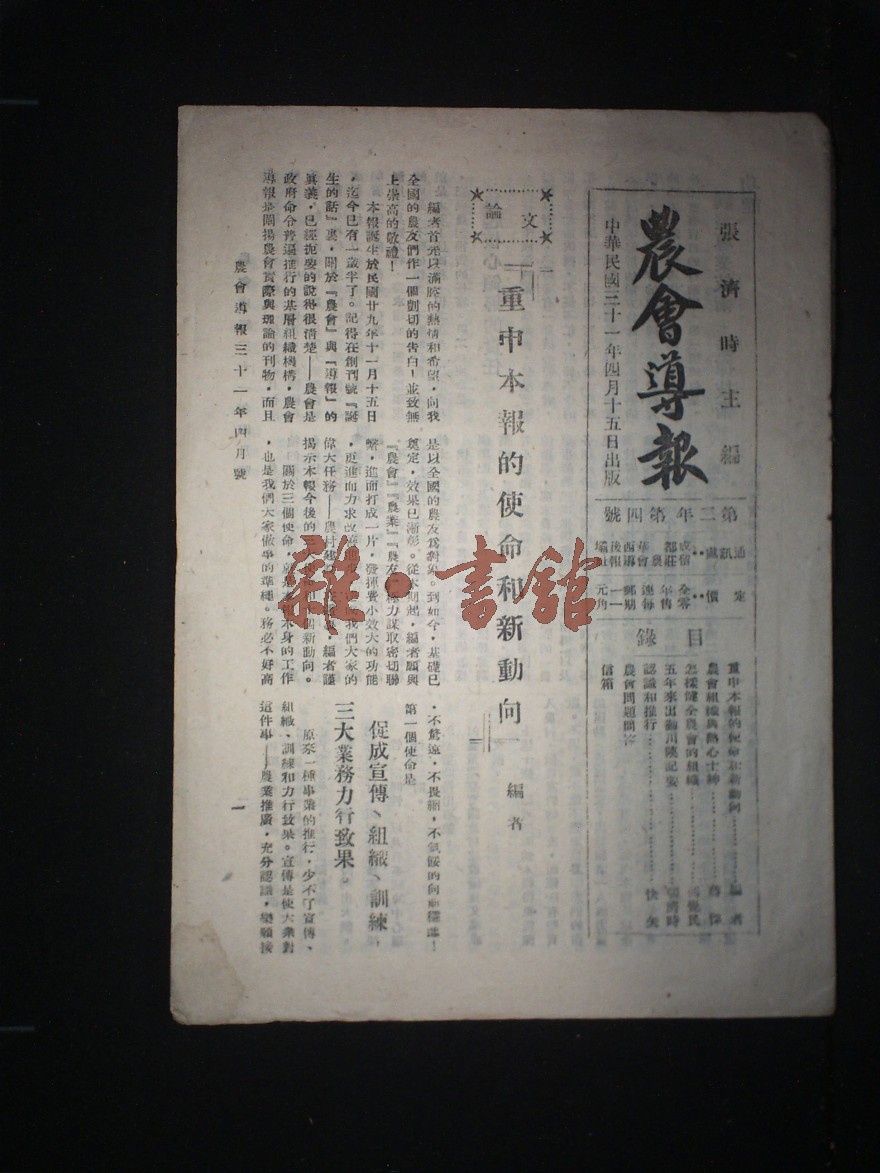 張濟時主編
農會導報
中華民國三十一年四月十五日出版
第二年第四號
通訊處：
成都華西壩
宿莊農會導報
定價：
全年連郵一元
零售每期一角
目錄
重申本報的使命和新動向………編者
農會組織與熱心士紳………蔣傑
怎樣健全農會的組織………
五年來出動川陝記要………張濟時
認識和推行………快矢
農會問題問答
信箱
論文
一重申本報的使命和新動向一
編者
編者首先以滿腔的熱情和希望，向我
全國的農友們作一個剴切的告白！並致無
上崇高的敬禮！
本報誕生於民國廿九年十一月十五日
，迄今已有一歲半了。記得在創刊號『誕
生的話』裏，關於『農會』與『導報』的
真義，已經扼要的說得很清楚——農會是
政府命令普遍推行的基層組織機構，農會
導報是闡揚農會實際與理論的刊物，而且
是以全國的農友為對象。到如今，基礎已
奠定，效果已漸彰。從本期起，編者願與
『農會』『農業』『農友』極力謀取密切聯
繫，進而打成一片，發揮費小效大的功能
，更進而力求改進
我們大家的
偉大任務——農村建
編者謹
揭示本報今後的三
個新動向。
關於三個使命，就是本報本身的工作
，也是我們大家做事的準繩。務必不好高
，不驚遠，不畏難，不氣餒的向前邁進！
第一個使命是
促成宣傳、組織、訓練，
三大業務力行致果。
原來一種事業的推行，少不了宣傳、
組織、訓練和力行致果。宣傳是使大衆對
這件事——農業推廣，充分認識，樂願接
農會導報三十一年四月號
一
雜·書館